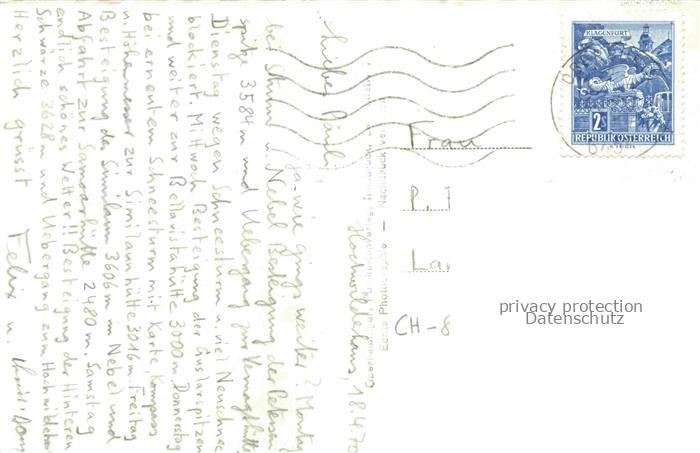 Hochwildehaus, 18.4.70
Liebe Päuli,
Ja - wie gings weiter? Montag
bei Sturm u. Nebel Besteigung der Petersen
spitze 3584 m und Uebergang zur Vernagthütte
Dienstag wegen Schneesturm u. viel Neuschnee
blockiert. Mittwoch Besteigung der Guslarspitzen
und weiter zur Bellavistahütte 3000 m. Donnerstag
bei erneutem Schneesturm mit Karte, Kompass
u. Höhenmesser zur Similaunhütte 3016 m. Freitag
Besteigung des Similaun 3606 m in Nebel und
Abfahrt zur Samoarhütte 2480 m. Samstag
endlich schönes Wetter!! Besteigung der Hinteren
Schwärze 3628 m und Uebergang zum Hochwildehaus
Herzlich grüsst Felix u.
Echte Photographie — Nachdruck
Frau
P.
CH-8
KLAGENFURT
2S
REPUBLIK ÖSTERREICH
privacy protection
Datenschutz